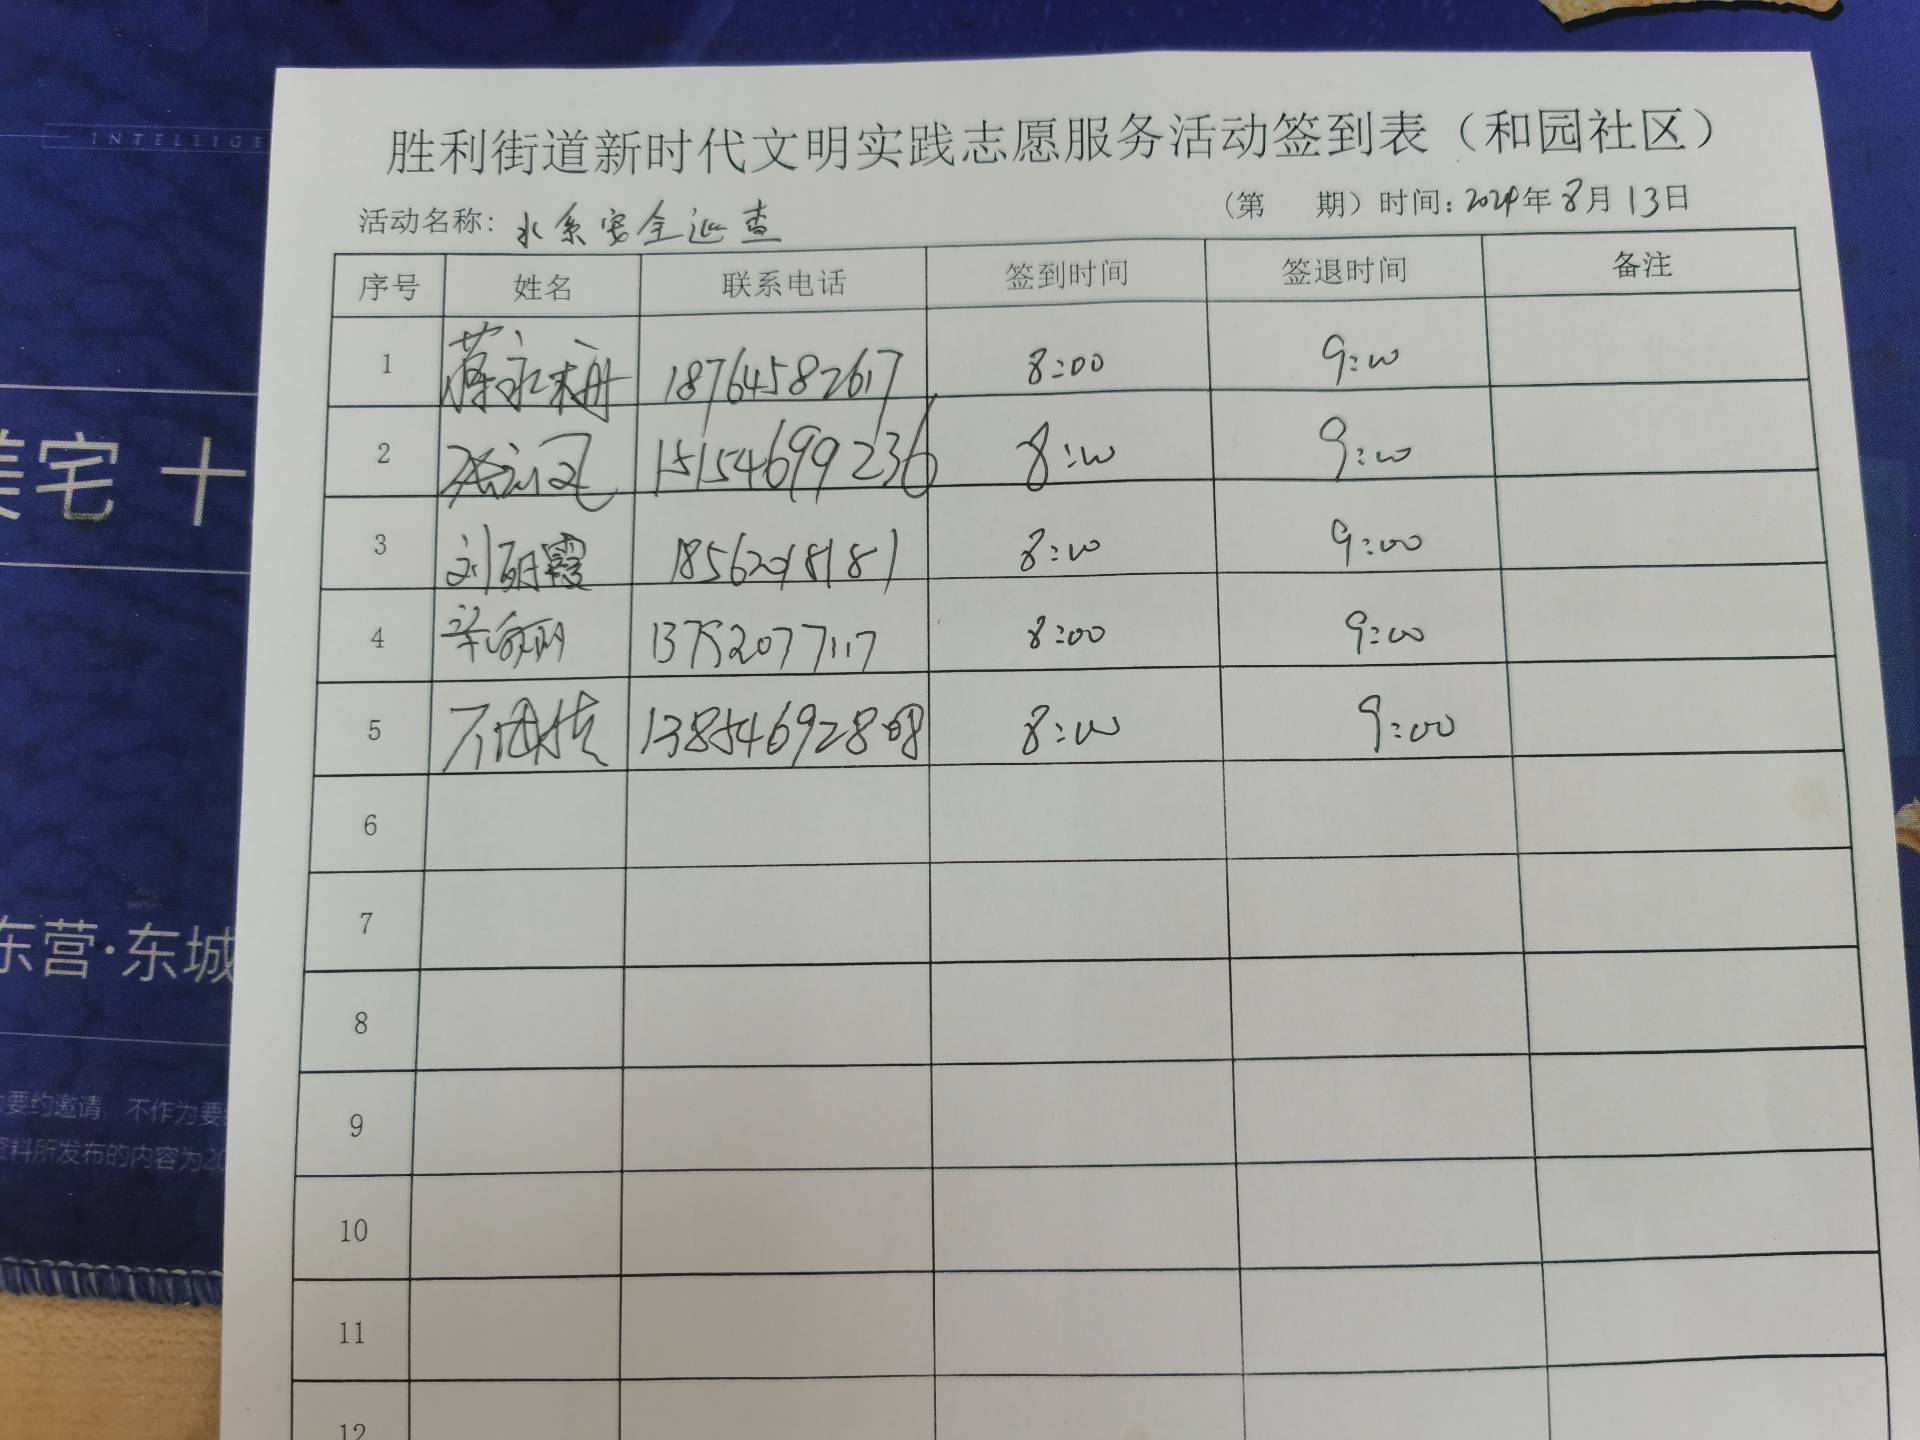 INTELLIGE
美宅 十
东营·东城
要约邀请 不作为要
资料所发布的内容为20
胜利街道新时代文明实践志愿服务活动签到表（和园社区）
活动名称：水系安全巡查 （第 期）时间：2024年8月13日
序号 姓名 联系电话 签到时间 签退时间 备注
1 18764582617 8:00 9:00
2 15154699236 8:00 9:00
3 刘丽霞 18562018181 8:00 9:00
4 13792077117 8:00 9:00
5 8:00 9:00
6
7
8
9
10
11
12